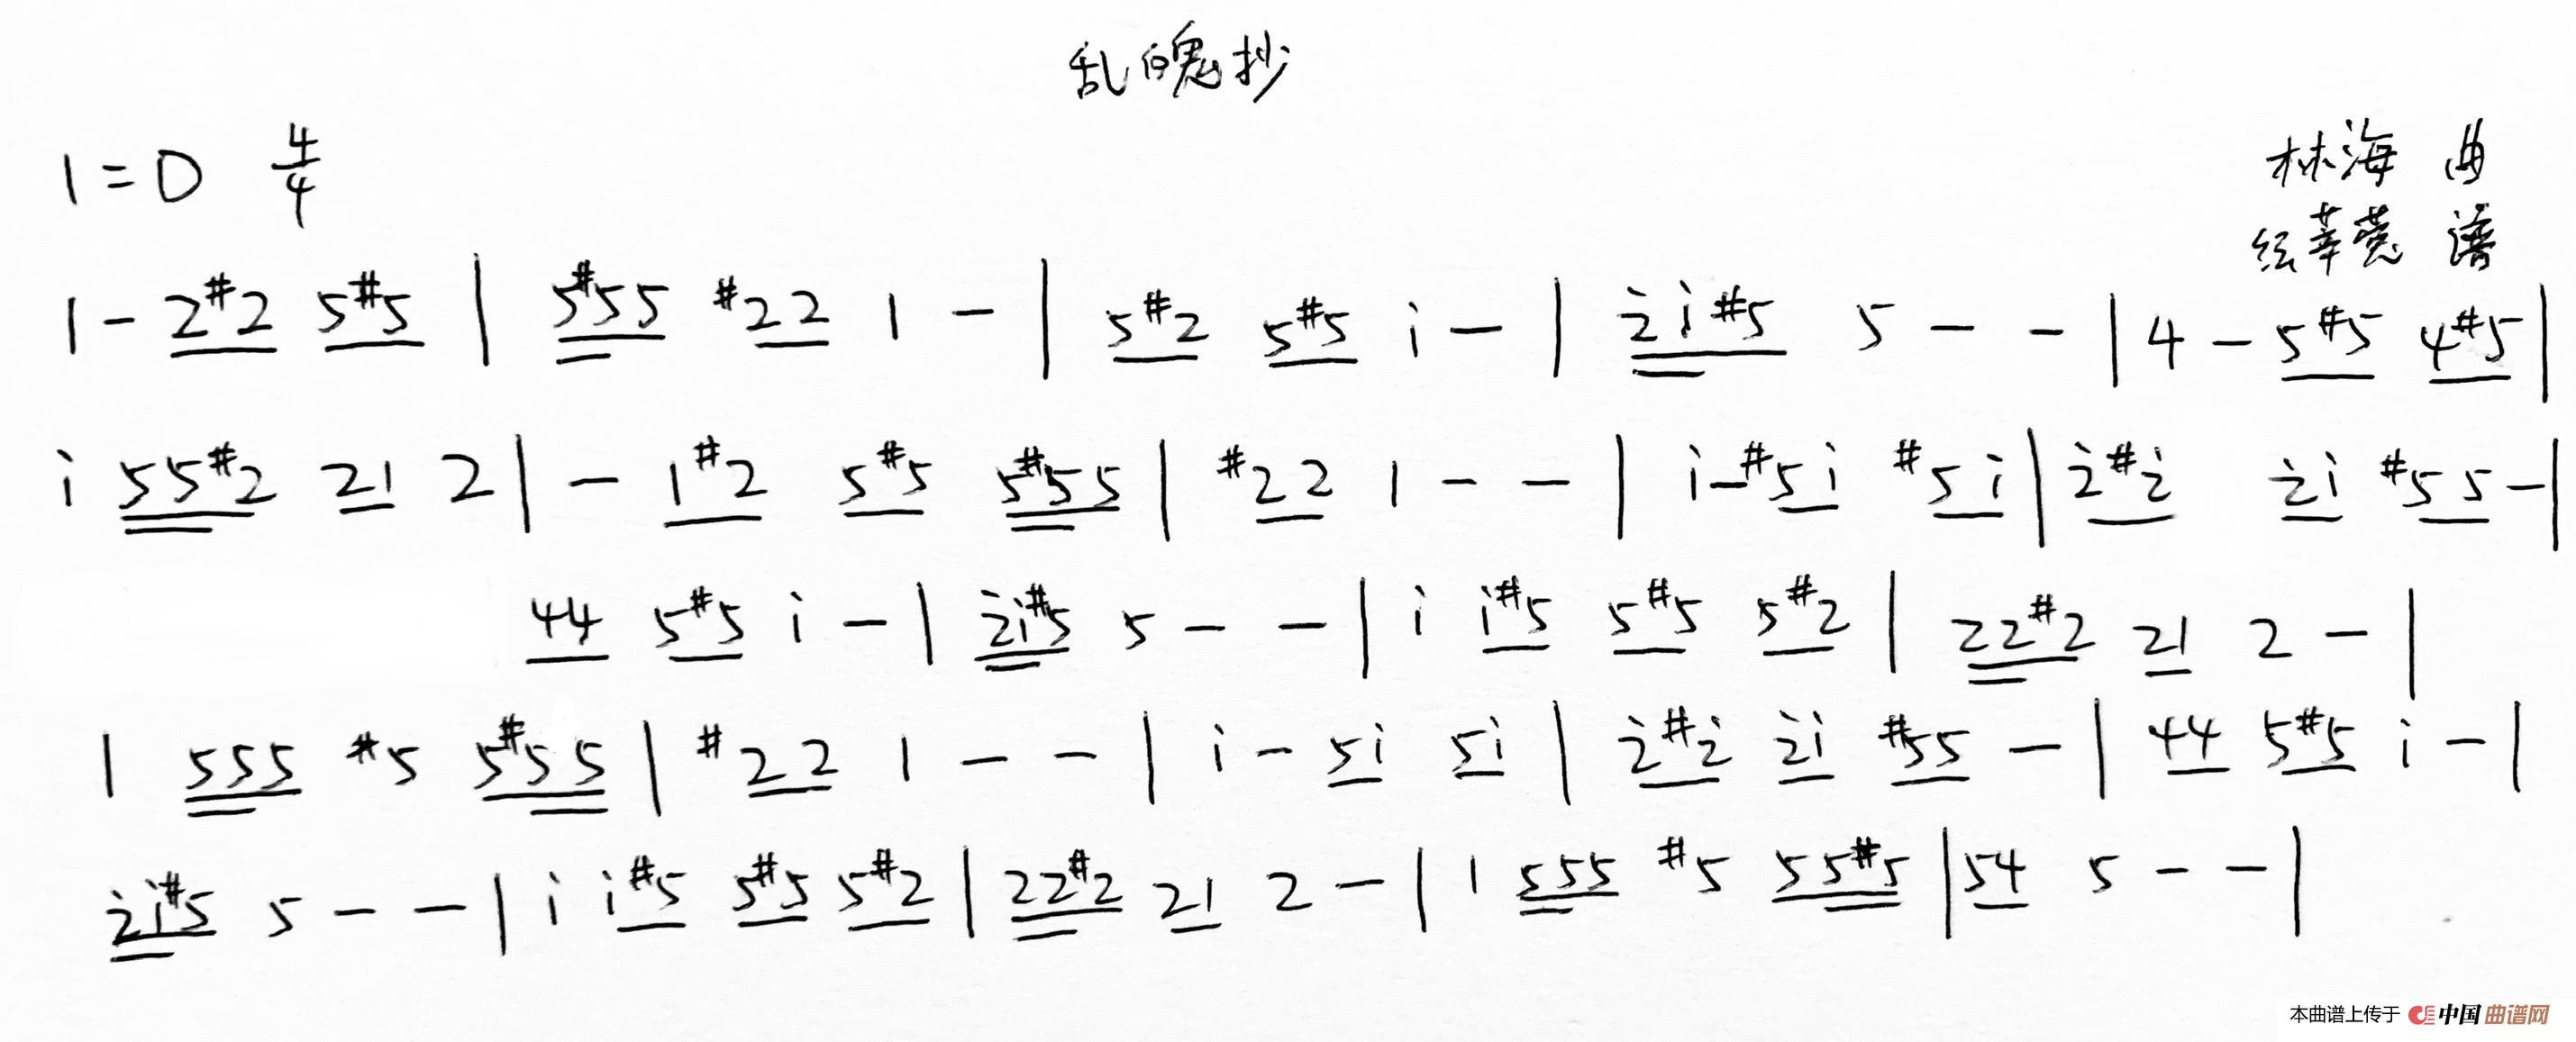 乱魄抄
1=D 4/4
林海 曲
纭莘薨 谱
1 - 2#2 5#5 | 5#55 #22 1 - | 5#2 5#5 i - | 2̇i#5 5 - - | 4 - 5#5 4#5 |
i 55#2 21 2 | - 1#2 5#5 5#55 | #22 1 - - | i - #5i #5i | 2̇#2̇ 2̇i #55 - |
44 5#5 i - | 2̇i#5 5 - - | i i#5 5#5 5#2 | 22#2 21 2 - |
1 555 #5 5#55 | #22 1 - - | i - 5i 5i | 2̇#2̇ 2̇i #55 - | 44 5#5 i - |
2̇i#5 5 - - | i i#5 5#5 5#2 | 22#2 21 2 - | 1 555 #5 55#5 | 54 5 - - |
本曲谱上传于 中国曲谱网